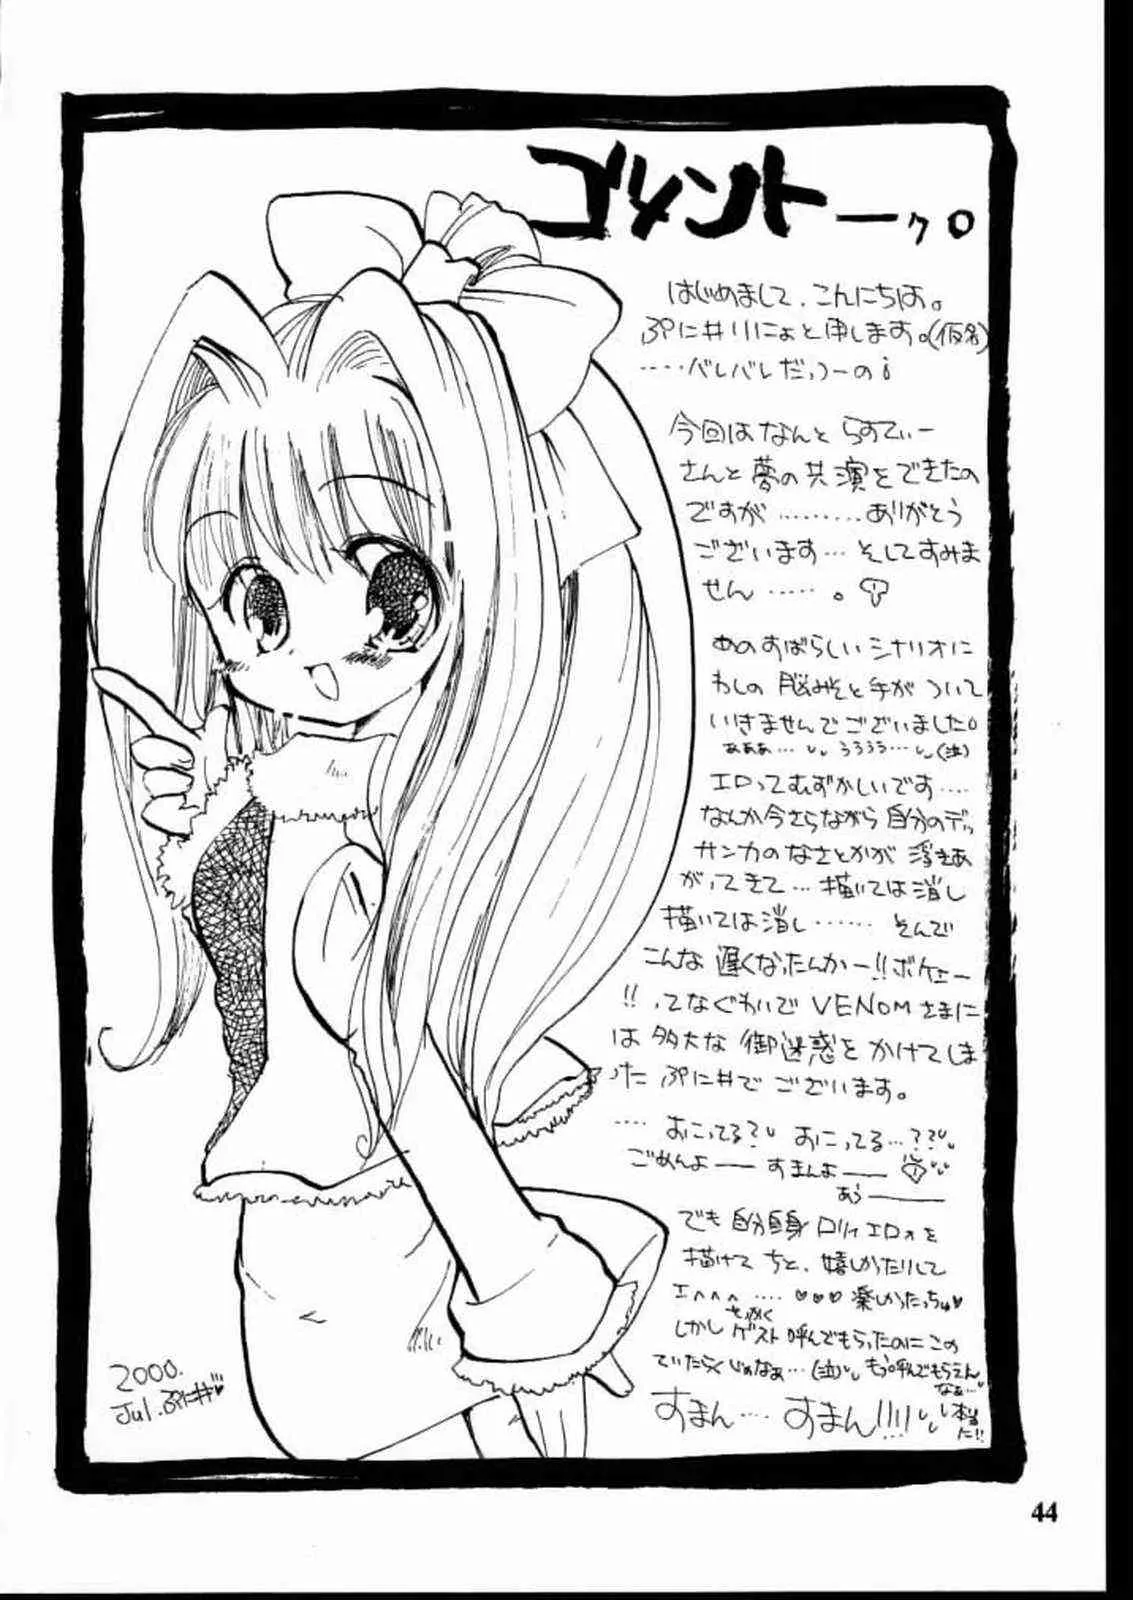 コメントーク。
はじめまして、こんにちは。
ぷに#りにょと申します。(仮名)
‥‥バレバレだっつーの!
今回はなんと らすてぃー
さんと 夢の共演をできたの
ですが‥‥‥‥ありがとう
ございます…そしてすみま
せん‥‥。
あのすばらしいシナリオに
わしの脳みそと手が ついて
いきませんでございました。
あぁぁ… うううう…(泣)
エロってむずかしいです‥‥
なんか今さらながら自分のデッ
サン力のなさとかが 浮きあ
がってきて…描いては消し
描いては消し‥‥‥ そんで
こんな 遅くなったんかー!!ボケェー
!!ってなぐわいで VENOMさまに
は 多大な 御迷惑を かけてしま
った ぷに#で ございます。
‥‥ おこってる?? おこってる…??
ごめんよー すまんよー
あぅー
でも 自分自身 ロリィエロォを
描けて ちと、嬉しかったりして
エへへへ‥‥♥♥♥ 楽しかったっちゅ♥
せっかく
しかし ゲスト 呼んでもらったのに この
ていたらくじゃなぁ…(泣) もう呼んでもらえん
なぁ…
すまん‥‥ すまん!!!!
2000.
Jul.ぷに#♥
44